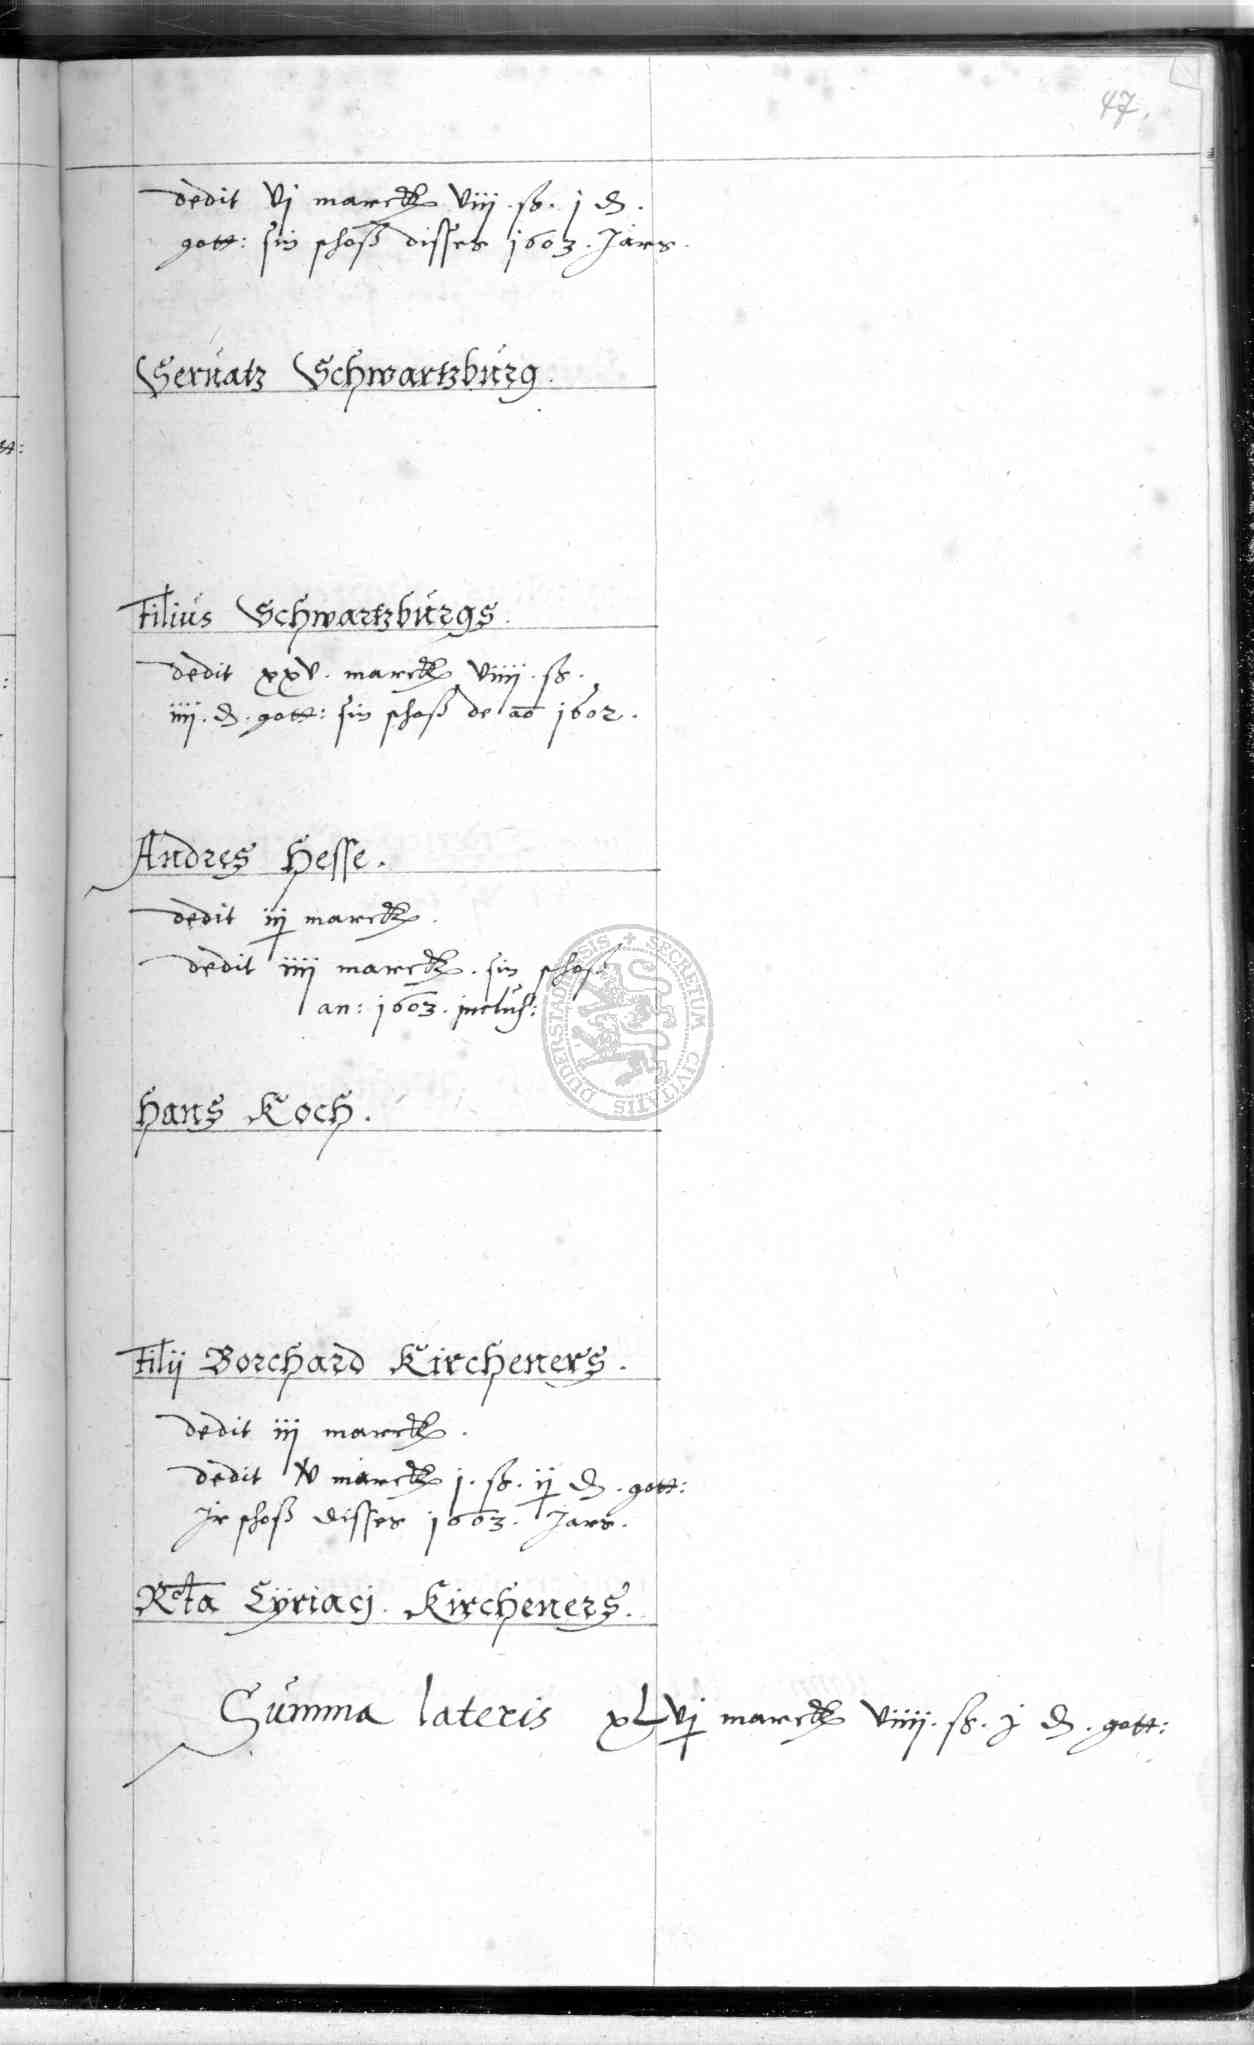 47.
dedit vj marck viij. ß. j ₰.
gott: sin schoß disses 1603. Jars.
Servatz Schwartzburg.
tt:
Filius Schwartzburgs.
dedit xxv. marck viiij. ß.
iiij. ₰. gott: sin schoß de ao 1602.
Andres Hesse.
dedit iij marck.
dedit iiij marck. sin schoß
an: 1603. inclus:
Hans Koch.
Filij Borchard Kircheners.
dedit iij marck.
dedit v marck j. ß. ij ₰. gott:
Jr schoß disses 1603. Jars.
Rcta Cÿriacj. Kircheners.
Summa lateris xLvj marck viiij. ß. j ₰. gott:
SECRETUM CIVITATIS DUDERSTADIENSIS